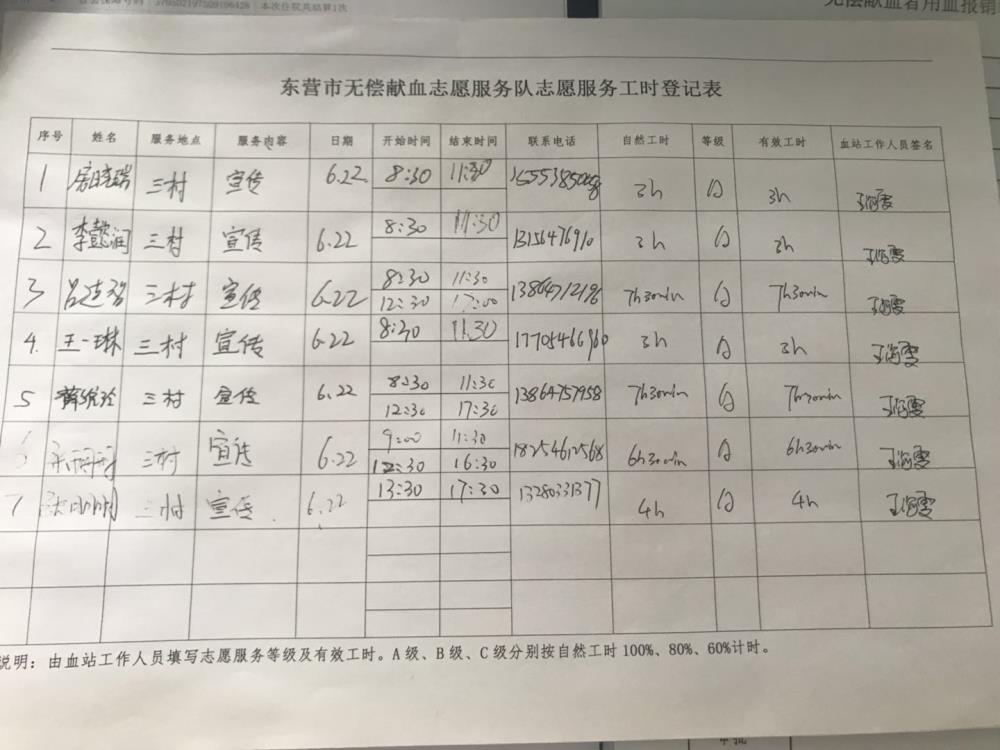 本次住院共结算1次
无偿献血者用血报销
东营市无偿献血志愿服务队志愿服务工时登记表
序号 姓名 服务地点 服务内容 日期 开始时间 结束时间 联系电话 自然工时 等级 有效工时 血站工作人员签名
1 三村 宣传 6.22 8:30 11:30 3h A 3h 王海霞
2 李懿润 三村 宣传 6.22 8:30 11:30 13156476910 3h A 3h 王海霞
3 三村 宣传 6.22 8:30 11:30 13864712196 7h30min A 7h30min 王海霞
12:30 17:00
4. 王一琳 三村 宣传 6.22 8:30 11:30 17705466960 3h A 3h 王海霞
5 三村 宣传 6.22 8:30 11:30 13864757958 7h30min A 7h30min 王海霞
12:30 17:30
6 三村 宣传 6.22 9:00 11:30 18254612568 6h30min A 6h30min 王海霞
12:30 16:30
7 三村 宣传 6.22 13:30 17:30 13280331377 4h A 4h 王海霞
说明：由血站工作人员填写志愿服务等级及有效工时。A级、B级、C级分别按自然工时100%、80%、60%计时。